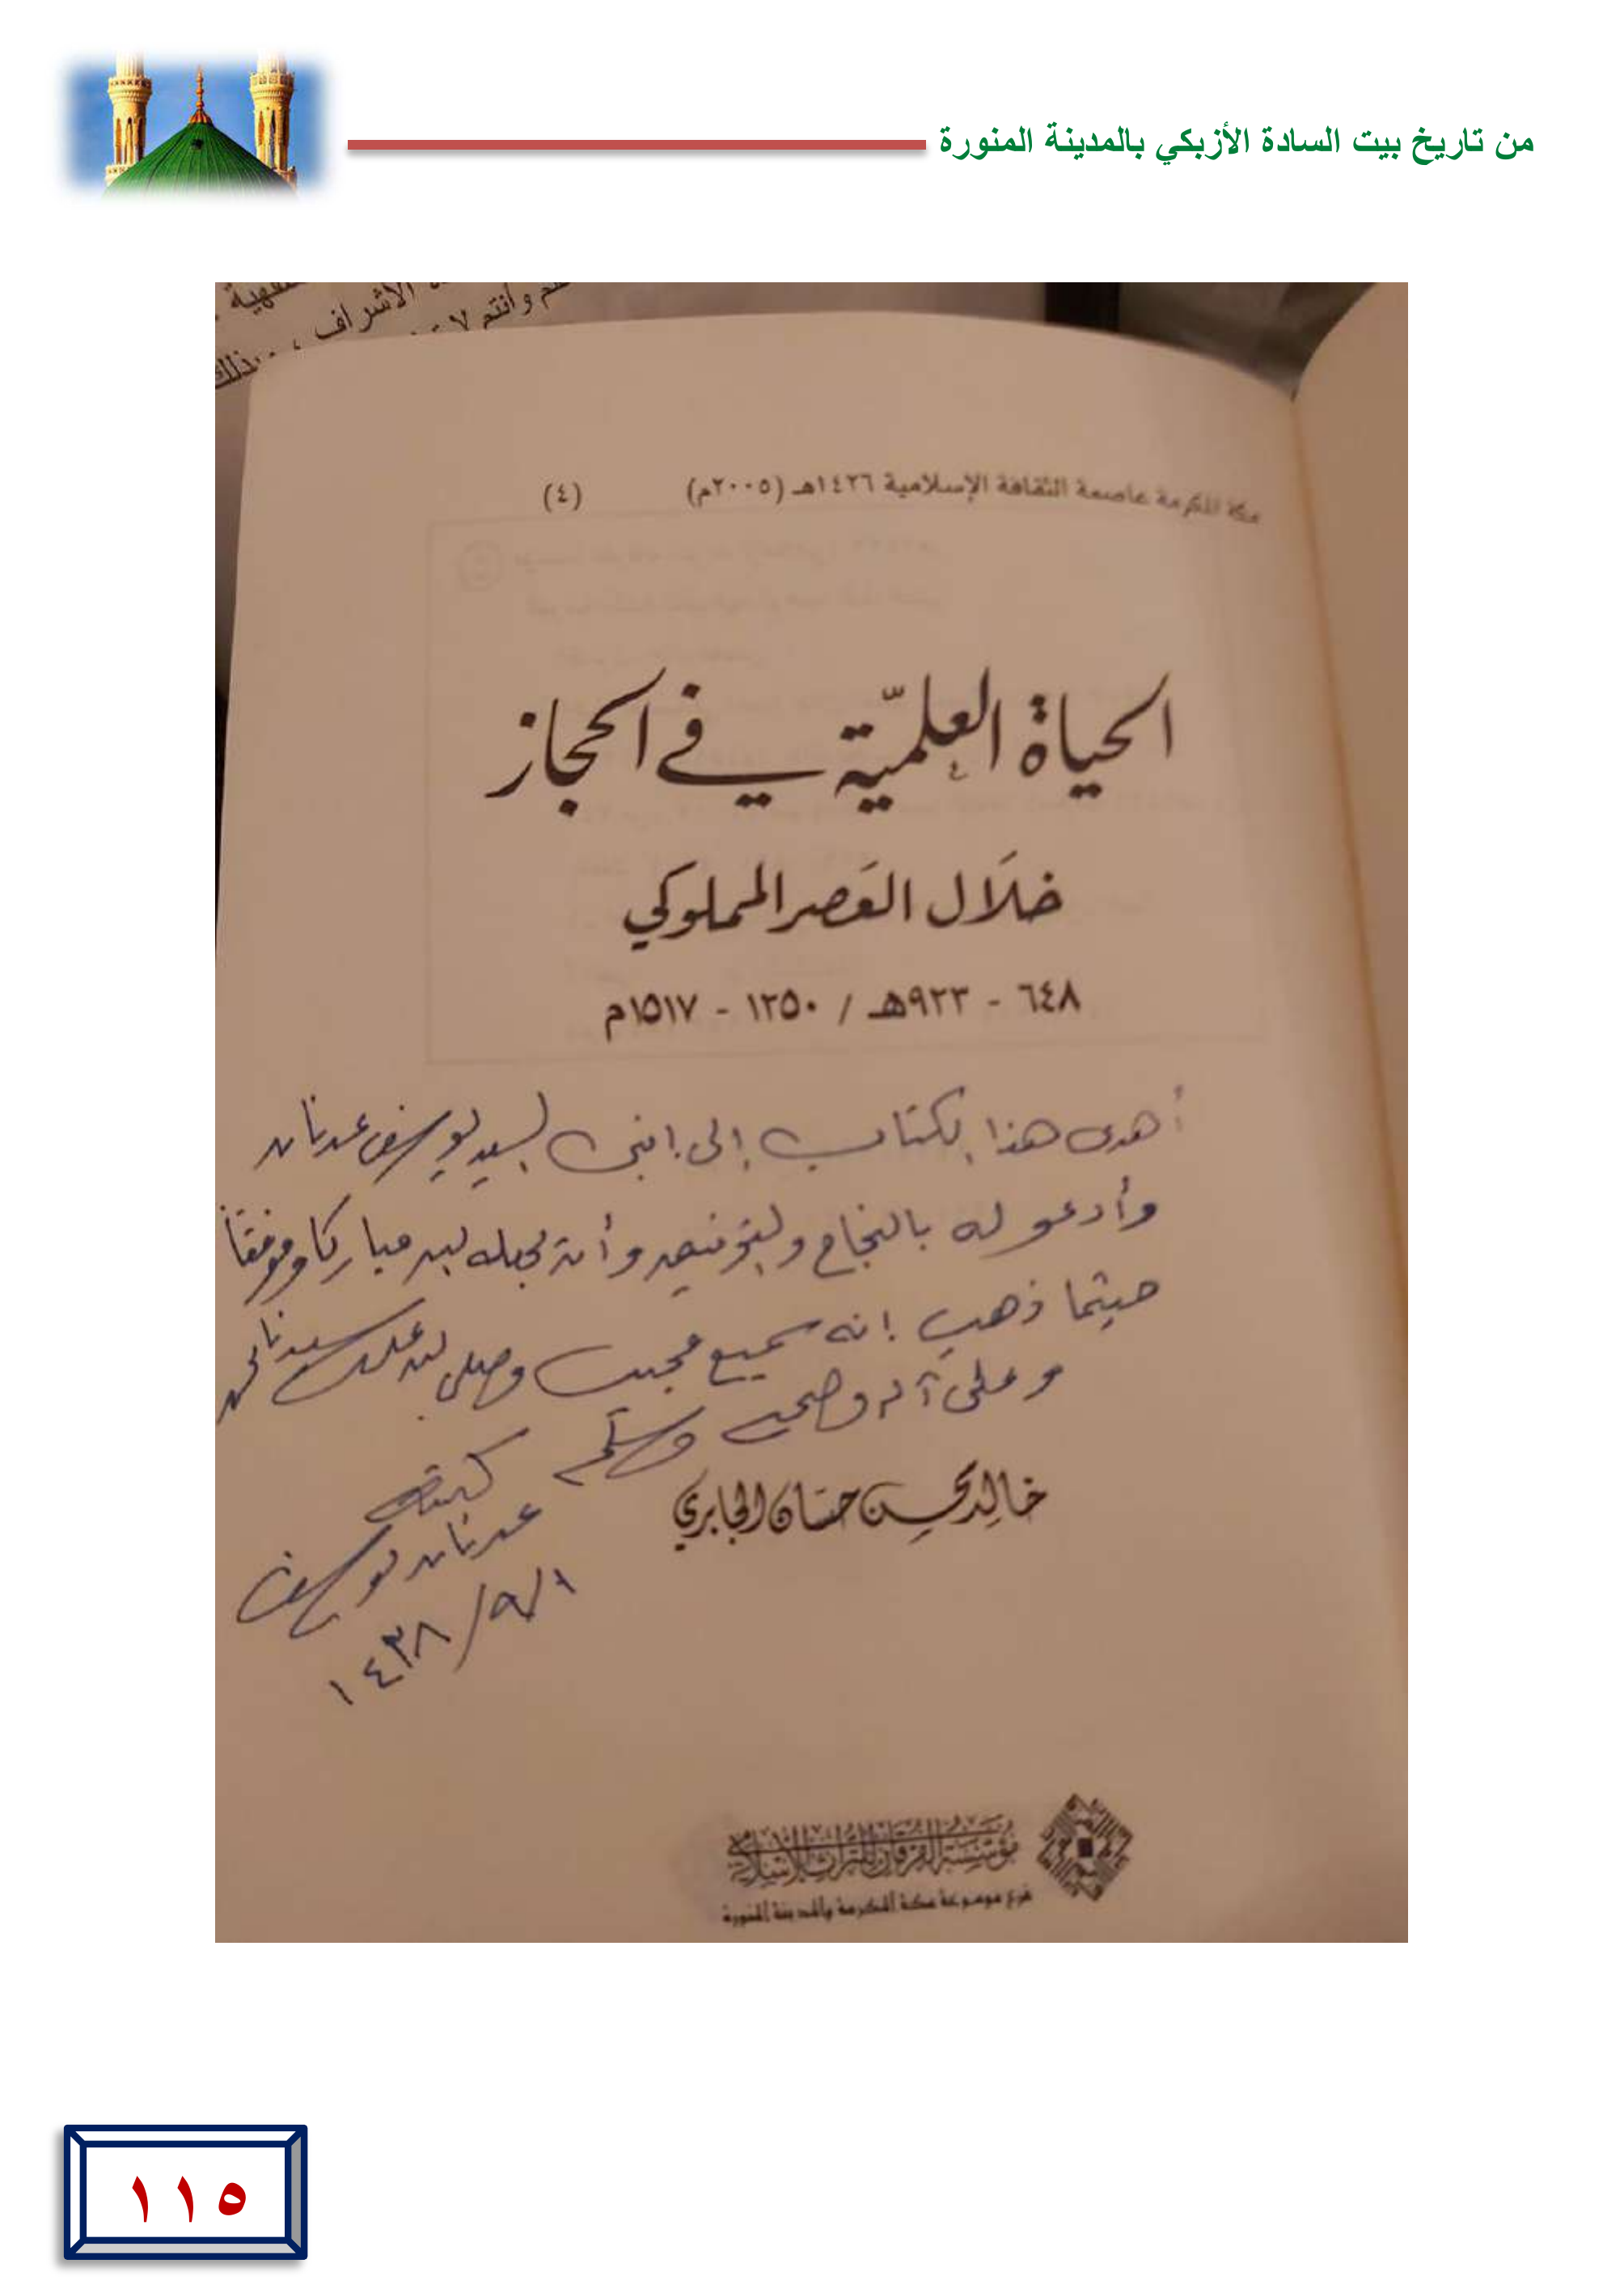 من تاريخ بيت السادة الأزبكي بالمدينة المنورة
الأشراف ، وبذلك
وأنتم لا
مكة المكرمة عاصمة الثقافة الإسلامية ١٤٢٦هـ (٢٠٠٥م) (٤)
الحياة العلميّة في الحجاز
خلَال العَصر المملوكي
٦٤٨ - ٩٢٣هـ / ١٢٥٠ - ١٥١٧م
أهدى هذا الكتاب إلى ابني السيد يوسف عدنان
وأدعو له بالنجاح والتوفيق وأن يجعله الله مباركا وموفقاً
حيثما ذهب إنه سميع مجيب وصلى الله على سيدنا محمد
وعلى آله وصحبه وسلم
كتبه
خالد محسن حسان الجابري
عدنان يوسف
١٤٣٨/٩/١
مؤسسة الفرقان للتراث الإسلامي
فرع موسوعة مكة المكرمة والمدينة المنورة
١١٥